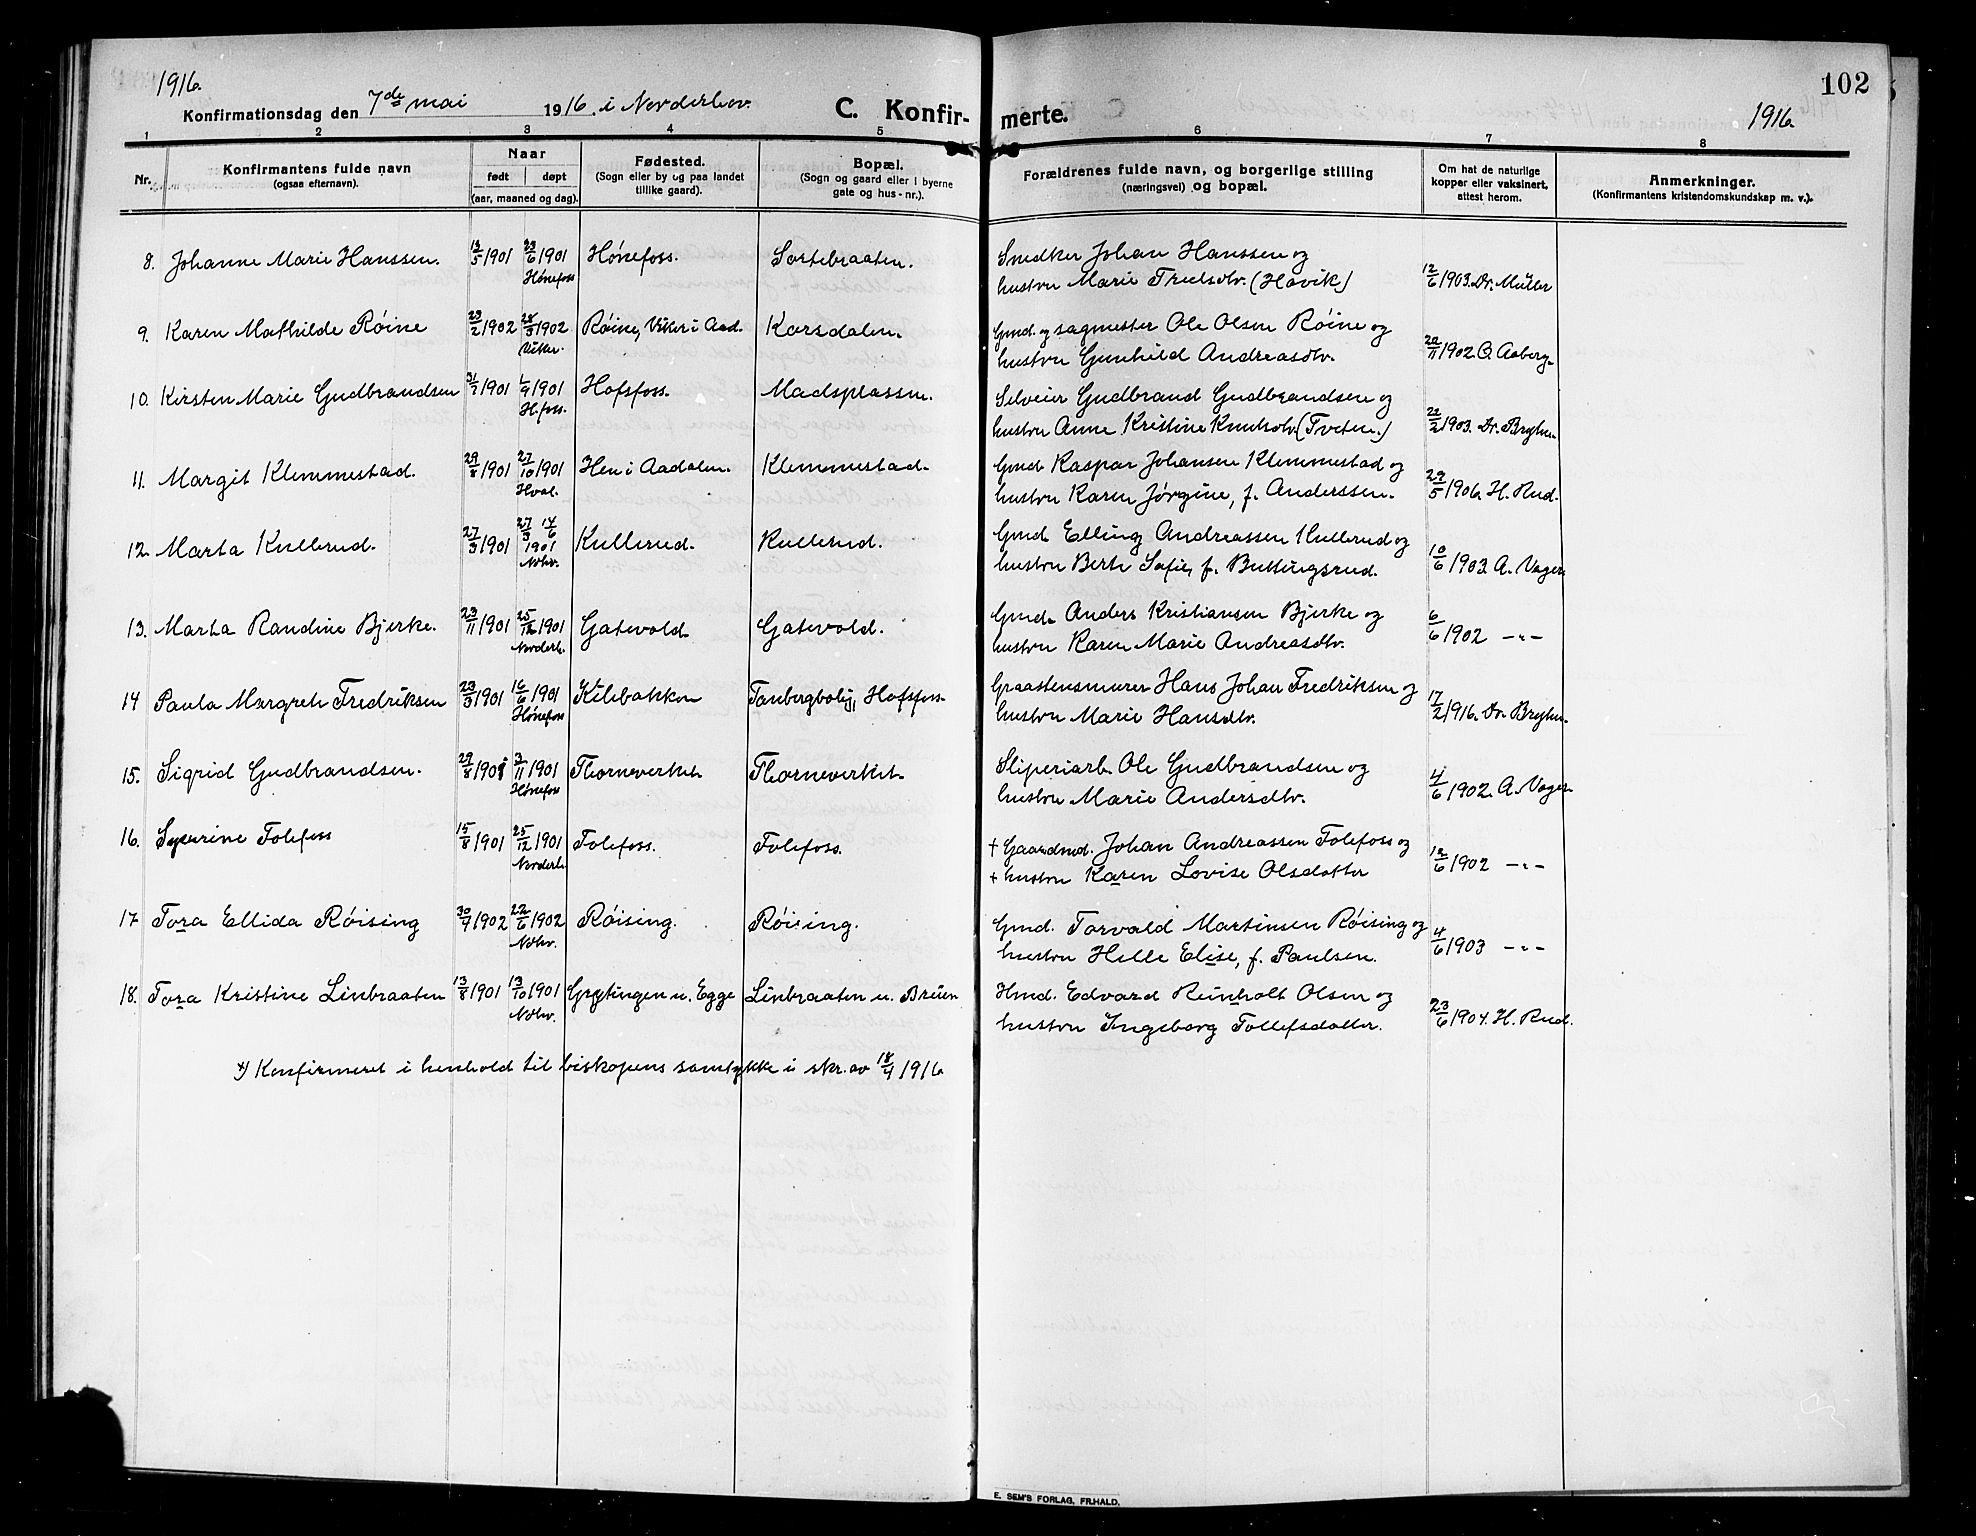 1916.
102
Konfirmationsdag den 7de mai 1916. i Norderhov. C. Konfir- merte. 1916.
1 2 3 4 5 6 7 8
Nr. Konfirmantens fulde navn (ogsaa efternavn).
Naar født døpt (aar, maaned og dag).
Fødested. (Sogn eller by og paa landet tillike gaard).
Bopæl. (Sogn og gaard eller i byerne gate og hus-nr.).
Forældrenes fulde navn, og borgerlige stilling (næringsvei) og bopæl.
Om hat de naturlige kopper eller vaksinert, attest herom.
Anmerkninger. (Konfirmantens kristendomskundskap m. v.).
8. Johanne Marie Hanssen. 13/5 1901 23/6 1901 Hønefoss Hønefoss. Sortebraaten. Snedker Johan Hanssen og
hustru Marie Truelsdtr. (Høvik) 12/6 1903. Dr. Müller
9. Karen Mathilde Røine 23/2 1902 28/3 1902 Viker. Røine, Viker i Aad. Karsdalen. Gmd. og sagmester Ole Olsen Røine og
hustru Gunhild Andreasdtr. 20/11 1902 O. Aaberg.
10. Kirsten Marie Gudbrandsen 31/7 1901 1/9 1901 H.foss. Hofsfoss. Madsplassen. Selveier Gudbrand Gudbrandsen og
hustru Anne Kristine Knutsdtr. (Tveten.) 22/2 1903. Dr. Bryhn.
11. Margit Klemmestad. 29/8 1901 27/10 1901 Hval. Hen i Aadalen. Klemmestad. Gmd. Kaspar Johansen Klemmestad og
hustru Karen Jørgine, f. Anderssen. 29/5 1906. H. Rud.
12. Marta Kullerud. 27/3 1901 27/3 14/6 1901 Nohv. Kullerud. Kullerud. Gmd. Elling Andreassen Kullerud og
hustru Berte Sofie, f. Buttingsrud. 10/6 1903. A. Vager.
13. Marta Randine Bjerke. 23/11 1901 25/12 1901 Norderh. Gatevold Gatevold. Gmd. Anders Kristiansen Bjerke og
hustru Karen Marie Andreasdtr. 6/6 1902 —"—
14 Paula Margrete Fredriksen 23/3 1901 16/6 1901 Hønefoss Kilebakken Tanbergbolig, Hofsfoss. Graastensmurer Hans Johan Fredriksen og
hustru Marie Hansdtr. 17/2 1916. Dr. Bryhn.
15. Sigrid Gudbrandsen. 29/8 1901 3/11 1901 Hønefoss Thorneverket. Thorneverket. Sliperiarb. Ole Gudbrandsen og
hustru Marie Andersdtr. 4/6 1902. A. Vager.
16. Syverine Tolefoss 15/8 1901 25/12 1901 Norderh. Tolefoss. Tolefoss. † Gaardmd. Johan Andreassen Tolefoss og
† hustru Karen Lovise Olsdatter 12/6 1902 —"—
17 Tora Ellida Røising 30/4 1902 22/6 1902 Nohv. Røising. Røising. Gmd. Torvald Martinsen Røising og
hustru Helle Elise, f. Paulsen. 4/6 1903 —"—
18. Tora Kristine Linbraaten 13/8 1901 13/10 1901 Nohv. Grytingen u. Egge Linbraaten u. Breien Hmd. Edvard Reinholt Olsen og
hustru Ingeborg Tollefsdatter. 23/6 1904. H. Rud.
*) Konfirmeret i henhold til biskopens samtykke i skr. av 18/4 1916
E. SEM'S FORLAG, FR.HALD.